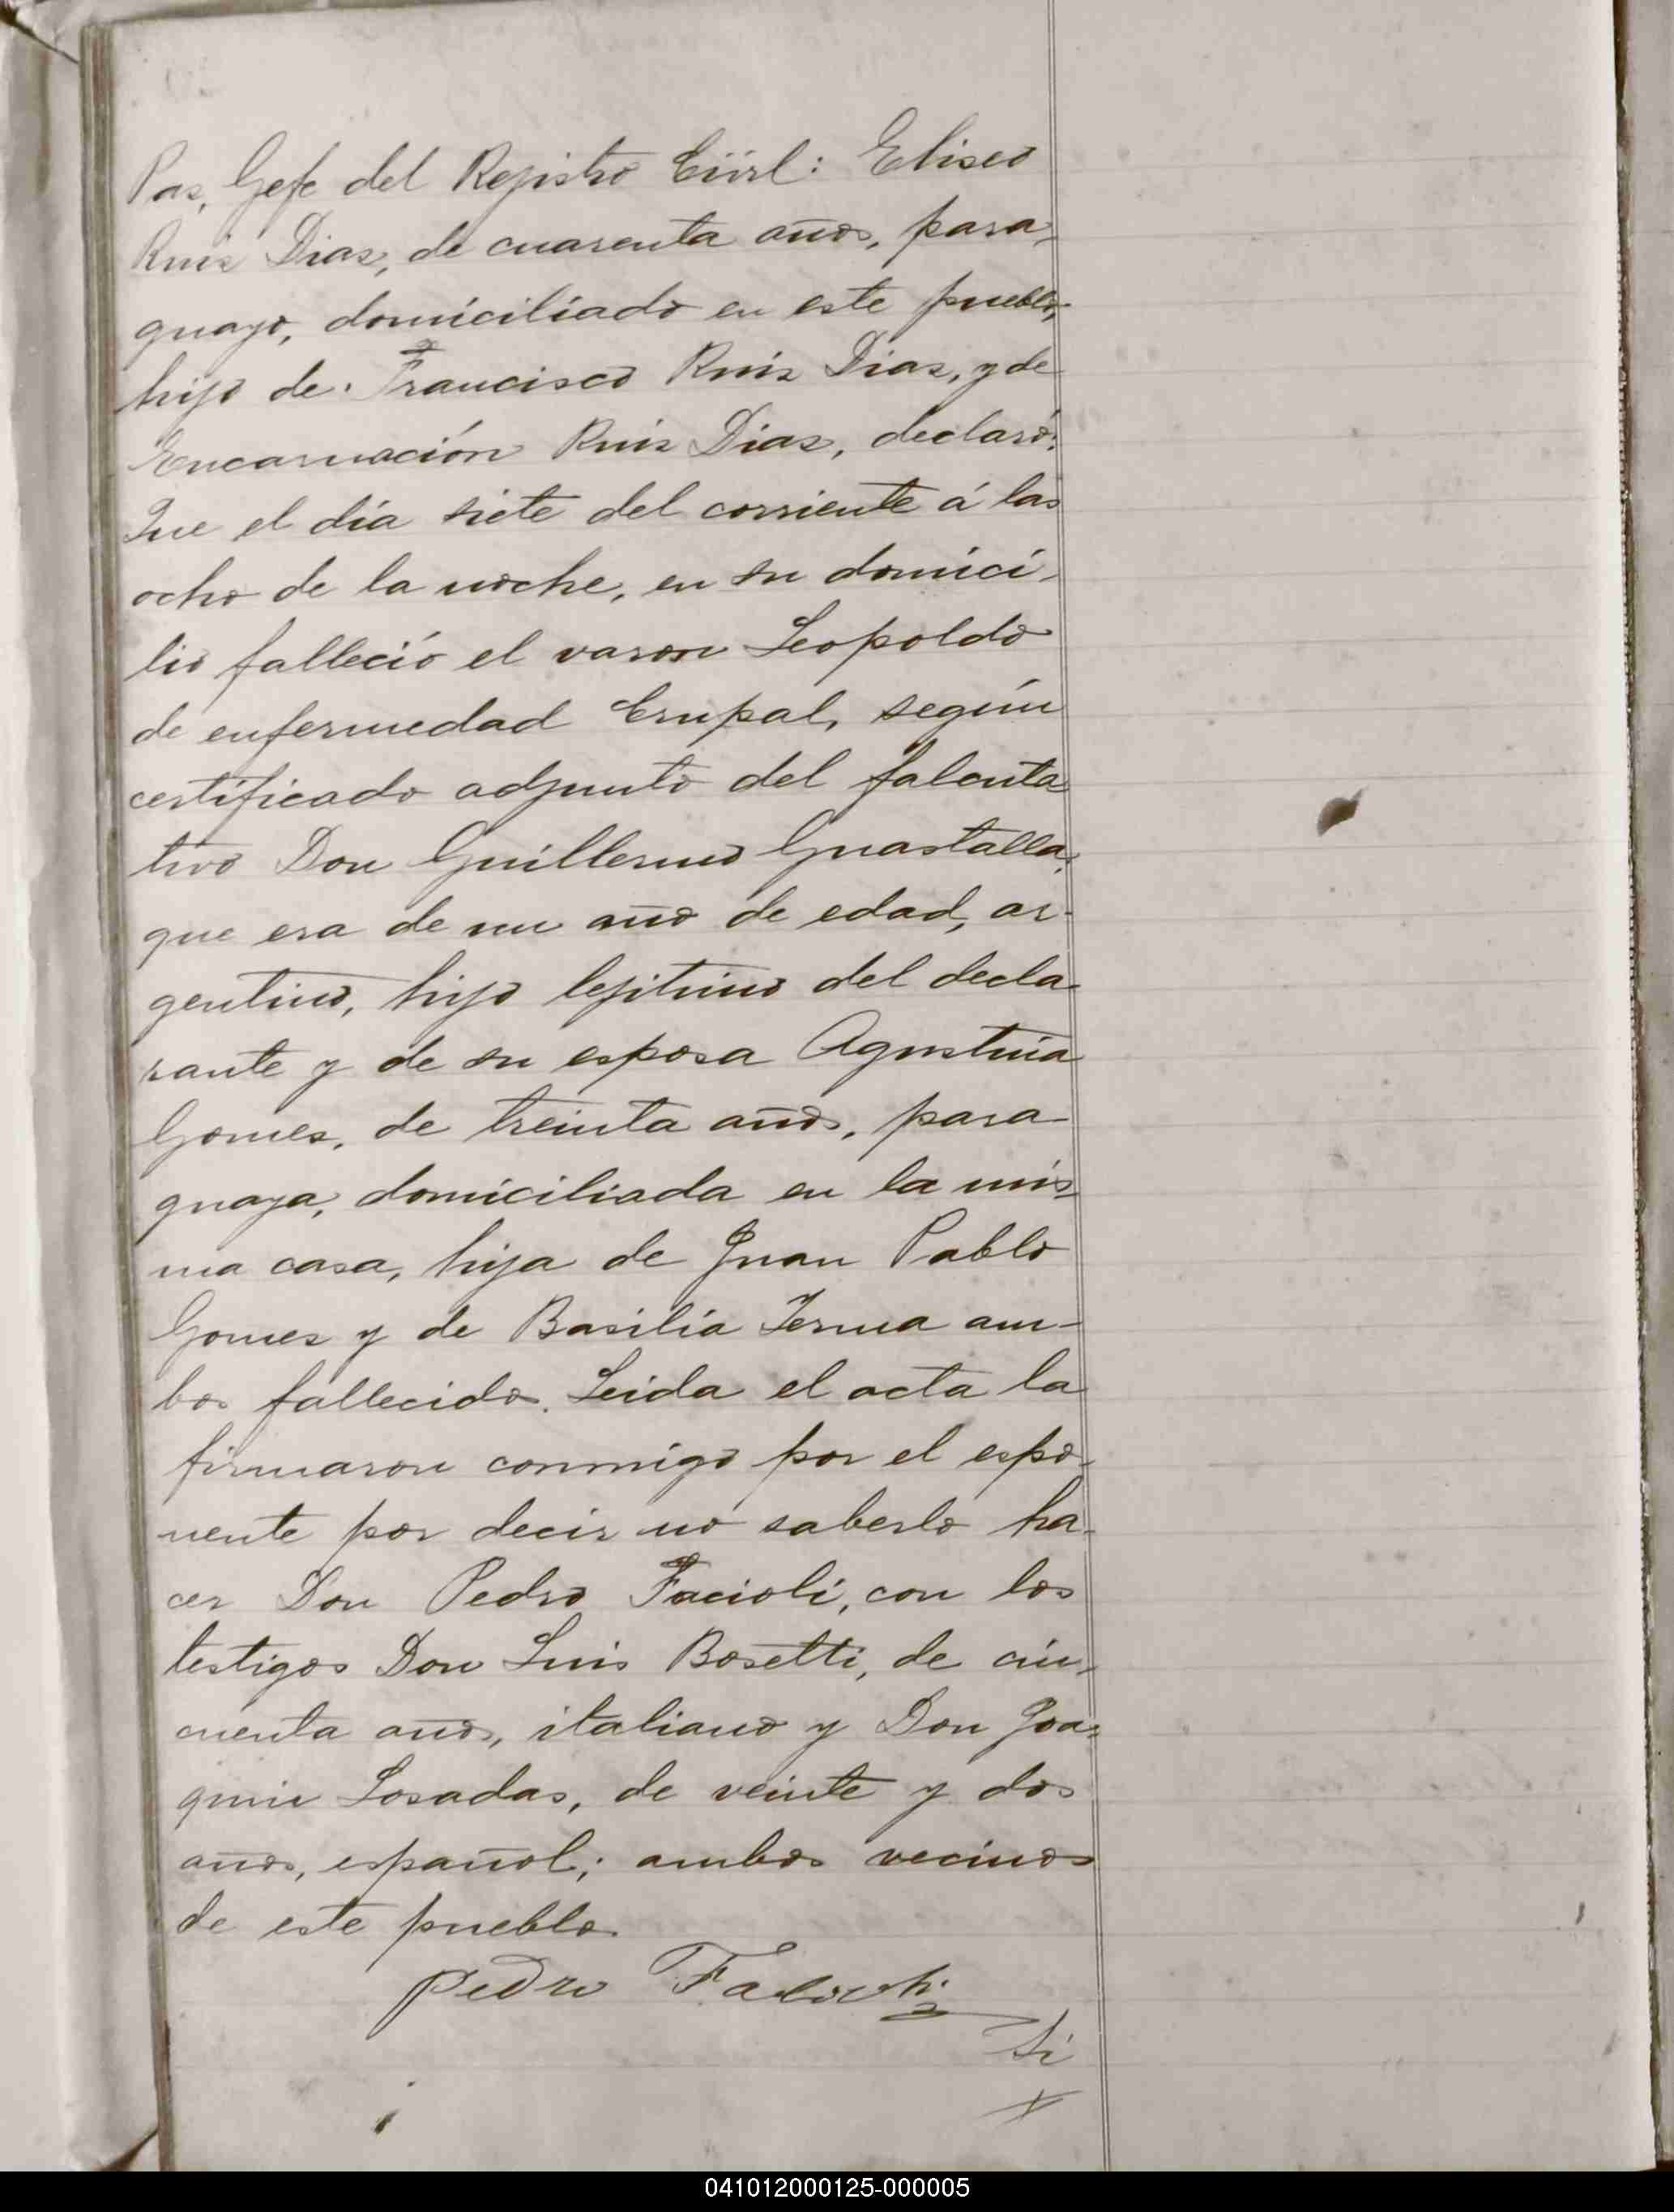 Pas, Gefe del Rejistro Civil: Eliseo
Ruis Dias, de cuarenta años, para-
guayo, domiciliado en este pueblo,
hijo de Francisco Ruis Dias, y de
Encarnación Ruis Dias, declaró:
Que el día siete del corriente á las
ocho de la noche, en su domici-
lio falleció el varon Leopoldo
de enfermedad Crupal, según
certificado adjunto del falcuta
tivo Don Guillermo Guastalla,
que era de un año de edad, ar-
gentino, hijo lejitimo del decla-
rante y de su esposa Agustina
Gomes, de treinta años, para-
guaya, domiciliada en la mis-
ma casa, hija de Juan Pablo
Gomes y de Basilia Lerma am-
bos fallecidos. Leida el acta la
firmaron conmigo por el espo-
nente por decir no saberlo ha-
cer Don Pedro Facioli, con los
testigos Don Luis Bosetti, de cin-
cuenta años, italiano y Don Joa-
quin Losadas, de veinte y dos
años, español; ambos vecinos
de este pueblo.
Pedro
041012000125-000005